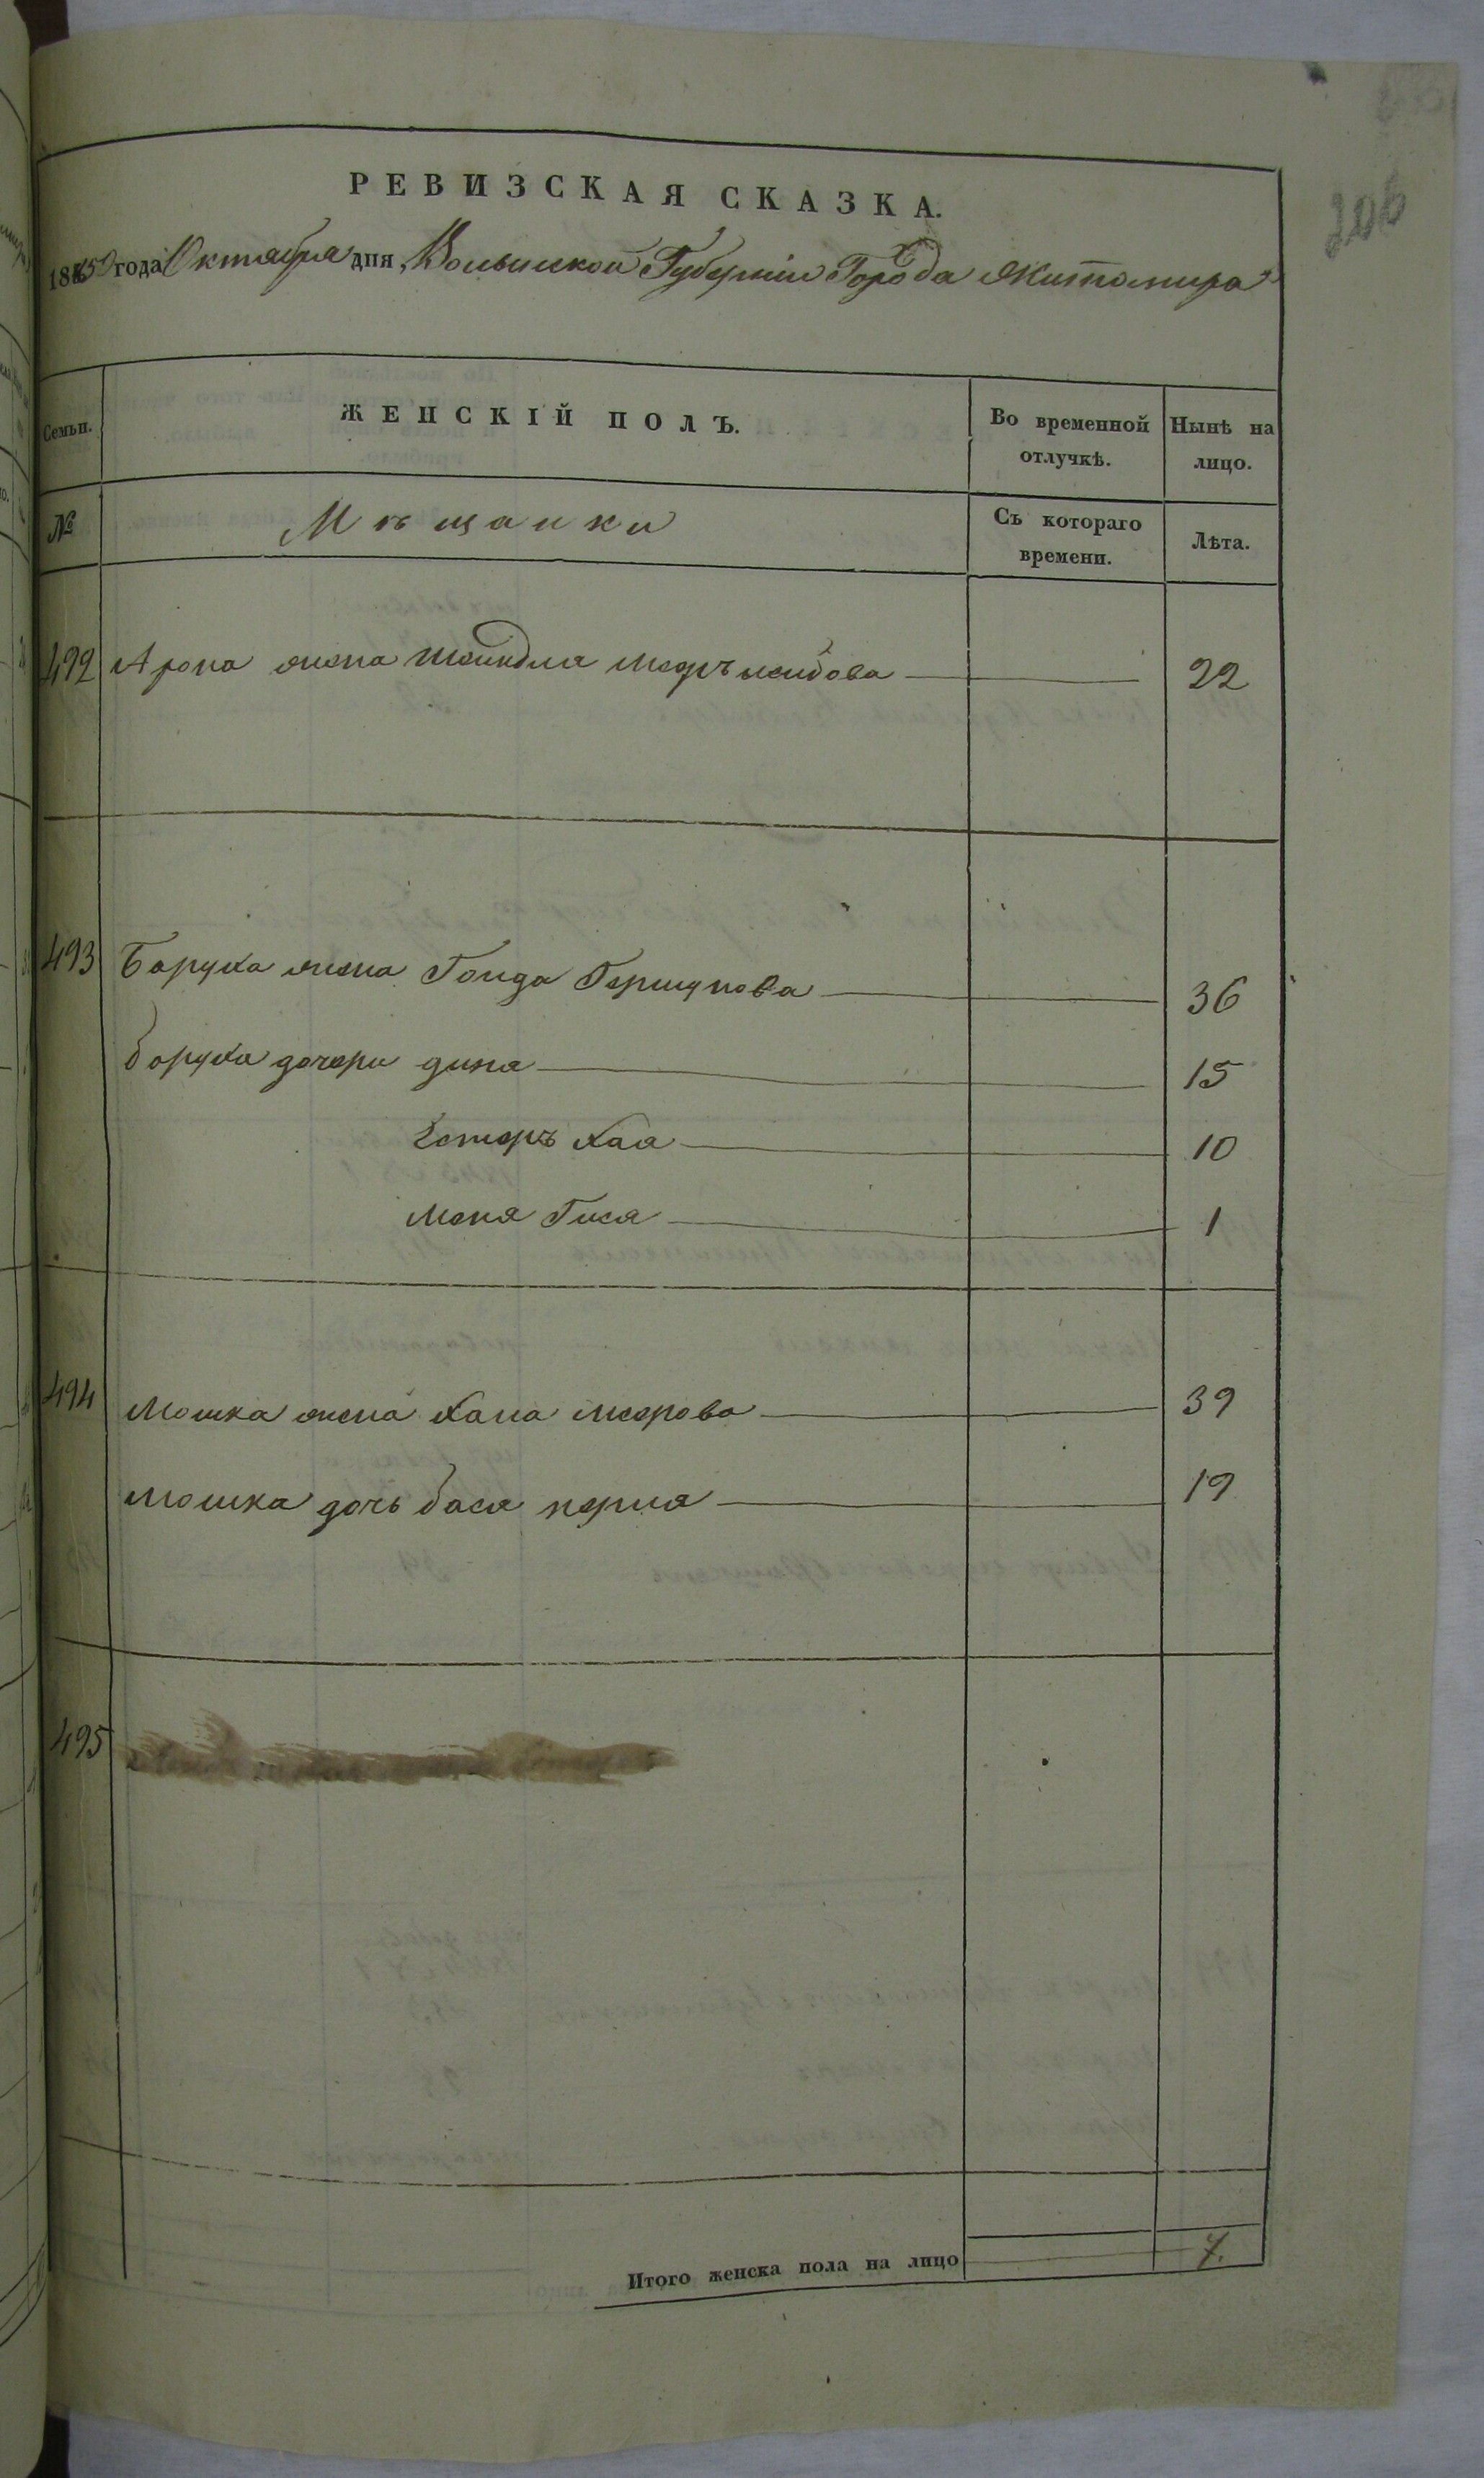 206
РЕВИЗСКАЯ СКАЗКА.
1850 года Октября дня, Волынской Губерніи Города Житомира
Семьи. ЖЕНСКІЙ ПОЛЪ. Во временной отлучкѣ. Нынѣ на лицо.
№ Мѣщанки Съ котораго времени. Лѣта.
492 Арона жена Шейндля 22
493 Баруха жена Голда Гершунова 36
Боруха дочери дина 15
Естеръ Хая 10
Меня Гися 1
494 Мошка жена Хана Меерова 39
Мошка дочь бася перля 19
495
Итого женска пола на лицо 7.